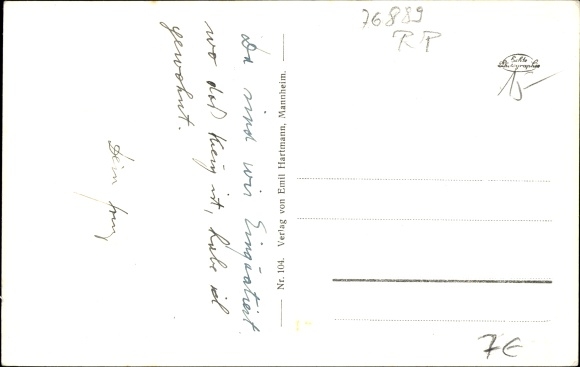 Da sind wir Einquatiert
wo das Kreuz ist, habe ich
gewohnt.
Dein
Nr. 104. Verlag von Emil Hartmann, Mannheim.
76889
RP
Echte
Photographie
15
7€